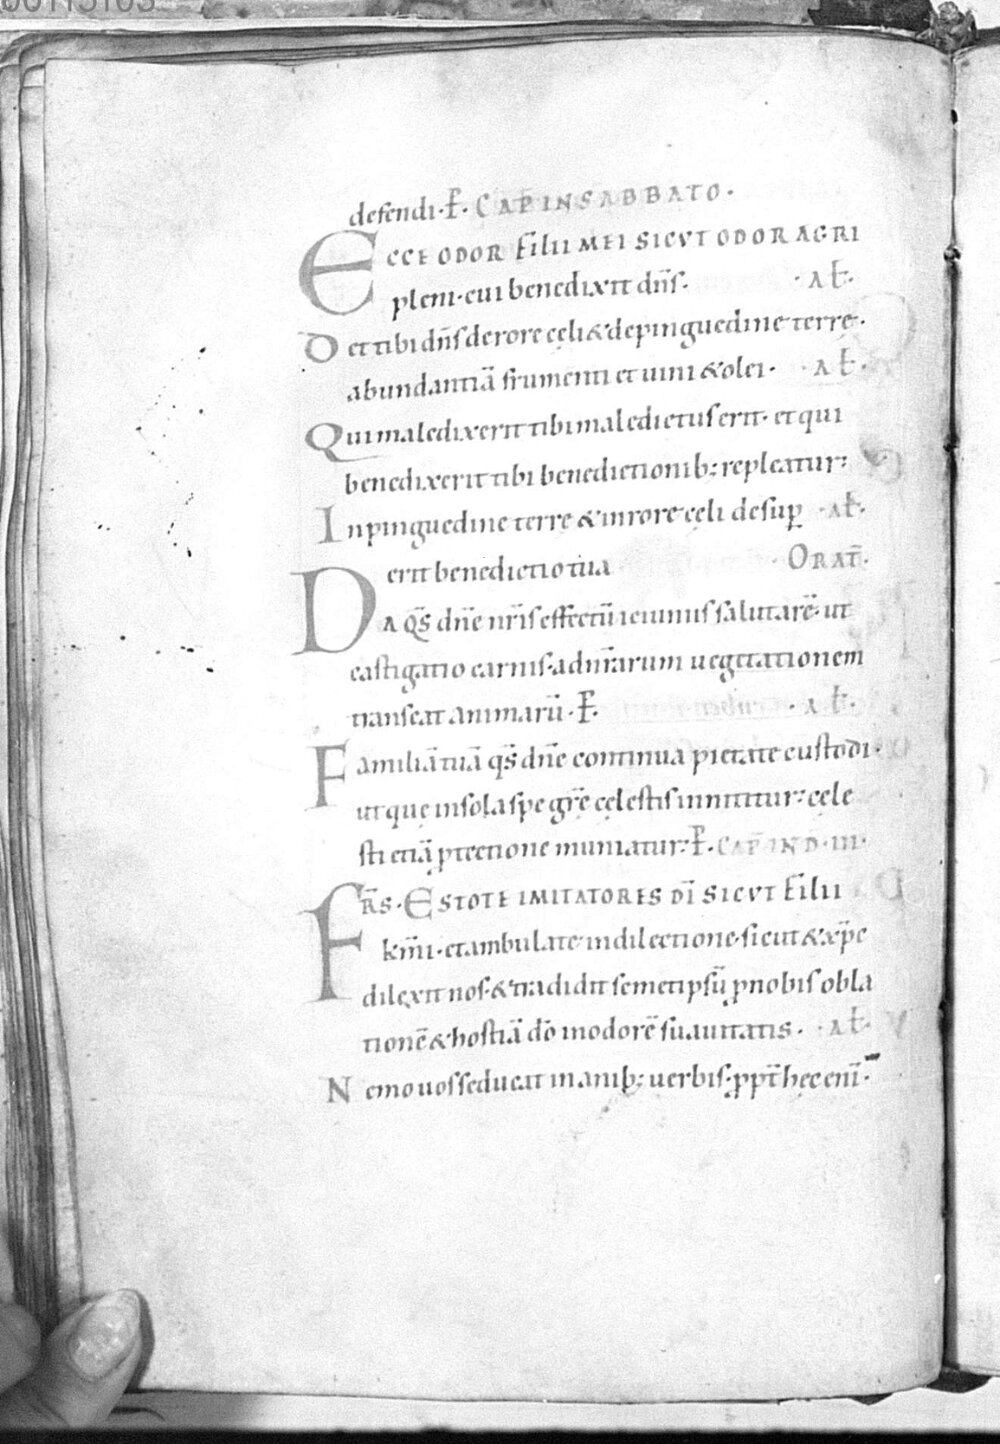 defendi· P̄· CAP̄ IN SABBATO·
ECCE ODOR FILII MEI SICVT ODOR AGRI
pleni· cui benedixit dn̄s· · AL̄·
Det tibi dn̄s de rore cęli & de pinguedine terrę·
abundantiā frumenti et uini & olei· · AL̄·
Qui maledixerit tibi maledictus erit· et qui
benedixerit tibi benedictionib; repleatur:
In pinguedine terre & in rore cęli desup̱ · AL̄·
erit benedictio tua · ORAT̄·
DA q̄s dn̄e nr̄is effectū ieiuniis salutarē· ut
castigatio carnis· ad nr̄arum uegetationem
transeat animarū· P̄· · AL̄·
Familiā tuā q̄s dn̄e continua pietate custodi·
ut que in sola spe gr̄e cęlestis innititur: cęle
sti etiā p̱tectione muniatur: P̄· CAP̄ IN D· III·
FR̄S· ESTOTE IMITATORES DĪ SICVT FILII
km̄i· et ambulate in dilectione· sicut & xp̄c
dilexit nos· & tradidit semetipsū p̱ nobis obla
tionē & hostiā dō in odorē suauitatis· · AL̄·
Nemo uos seducat inanib; uerbis· p̱pt̄ hęc enī·